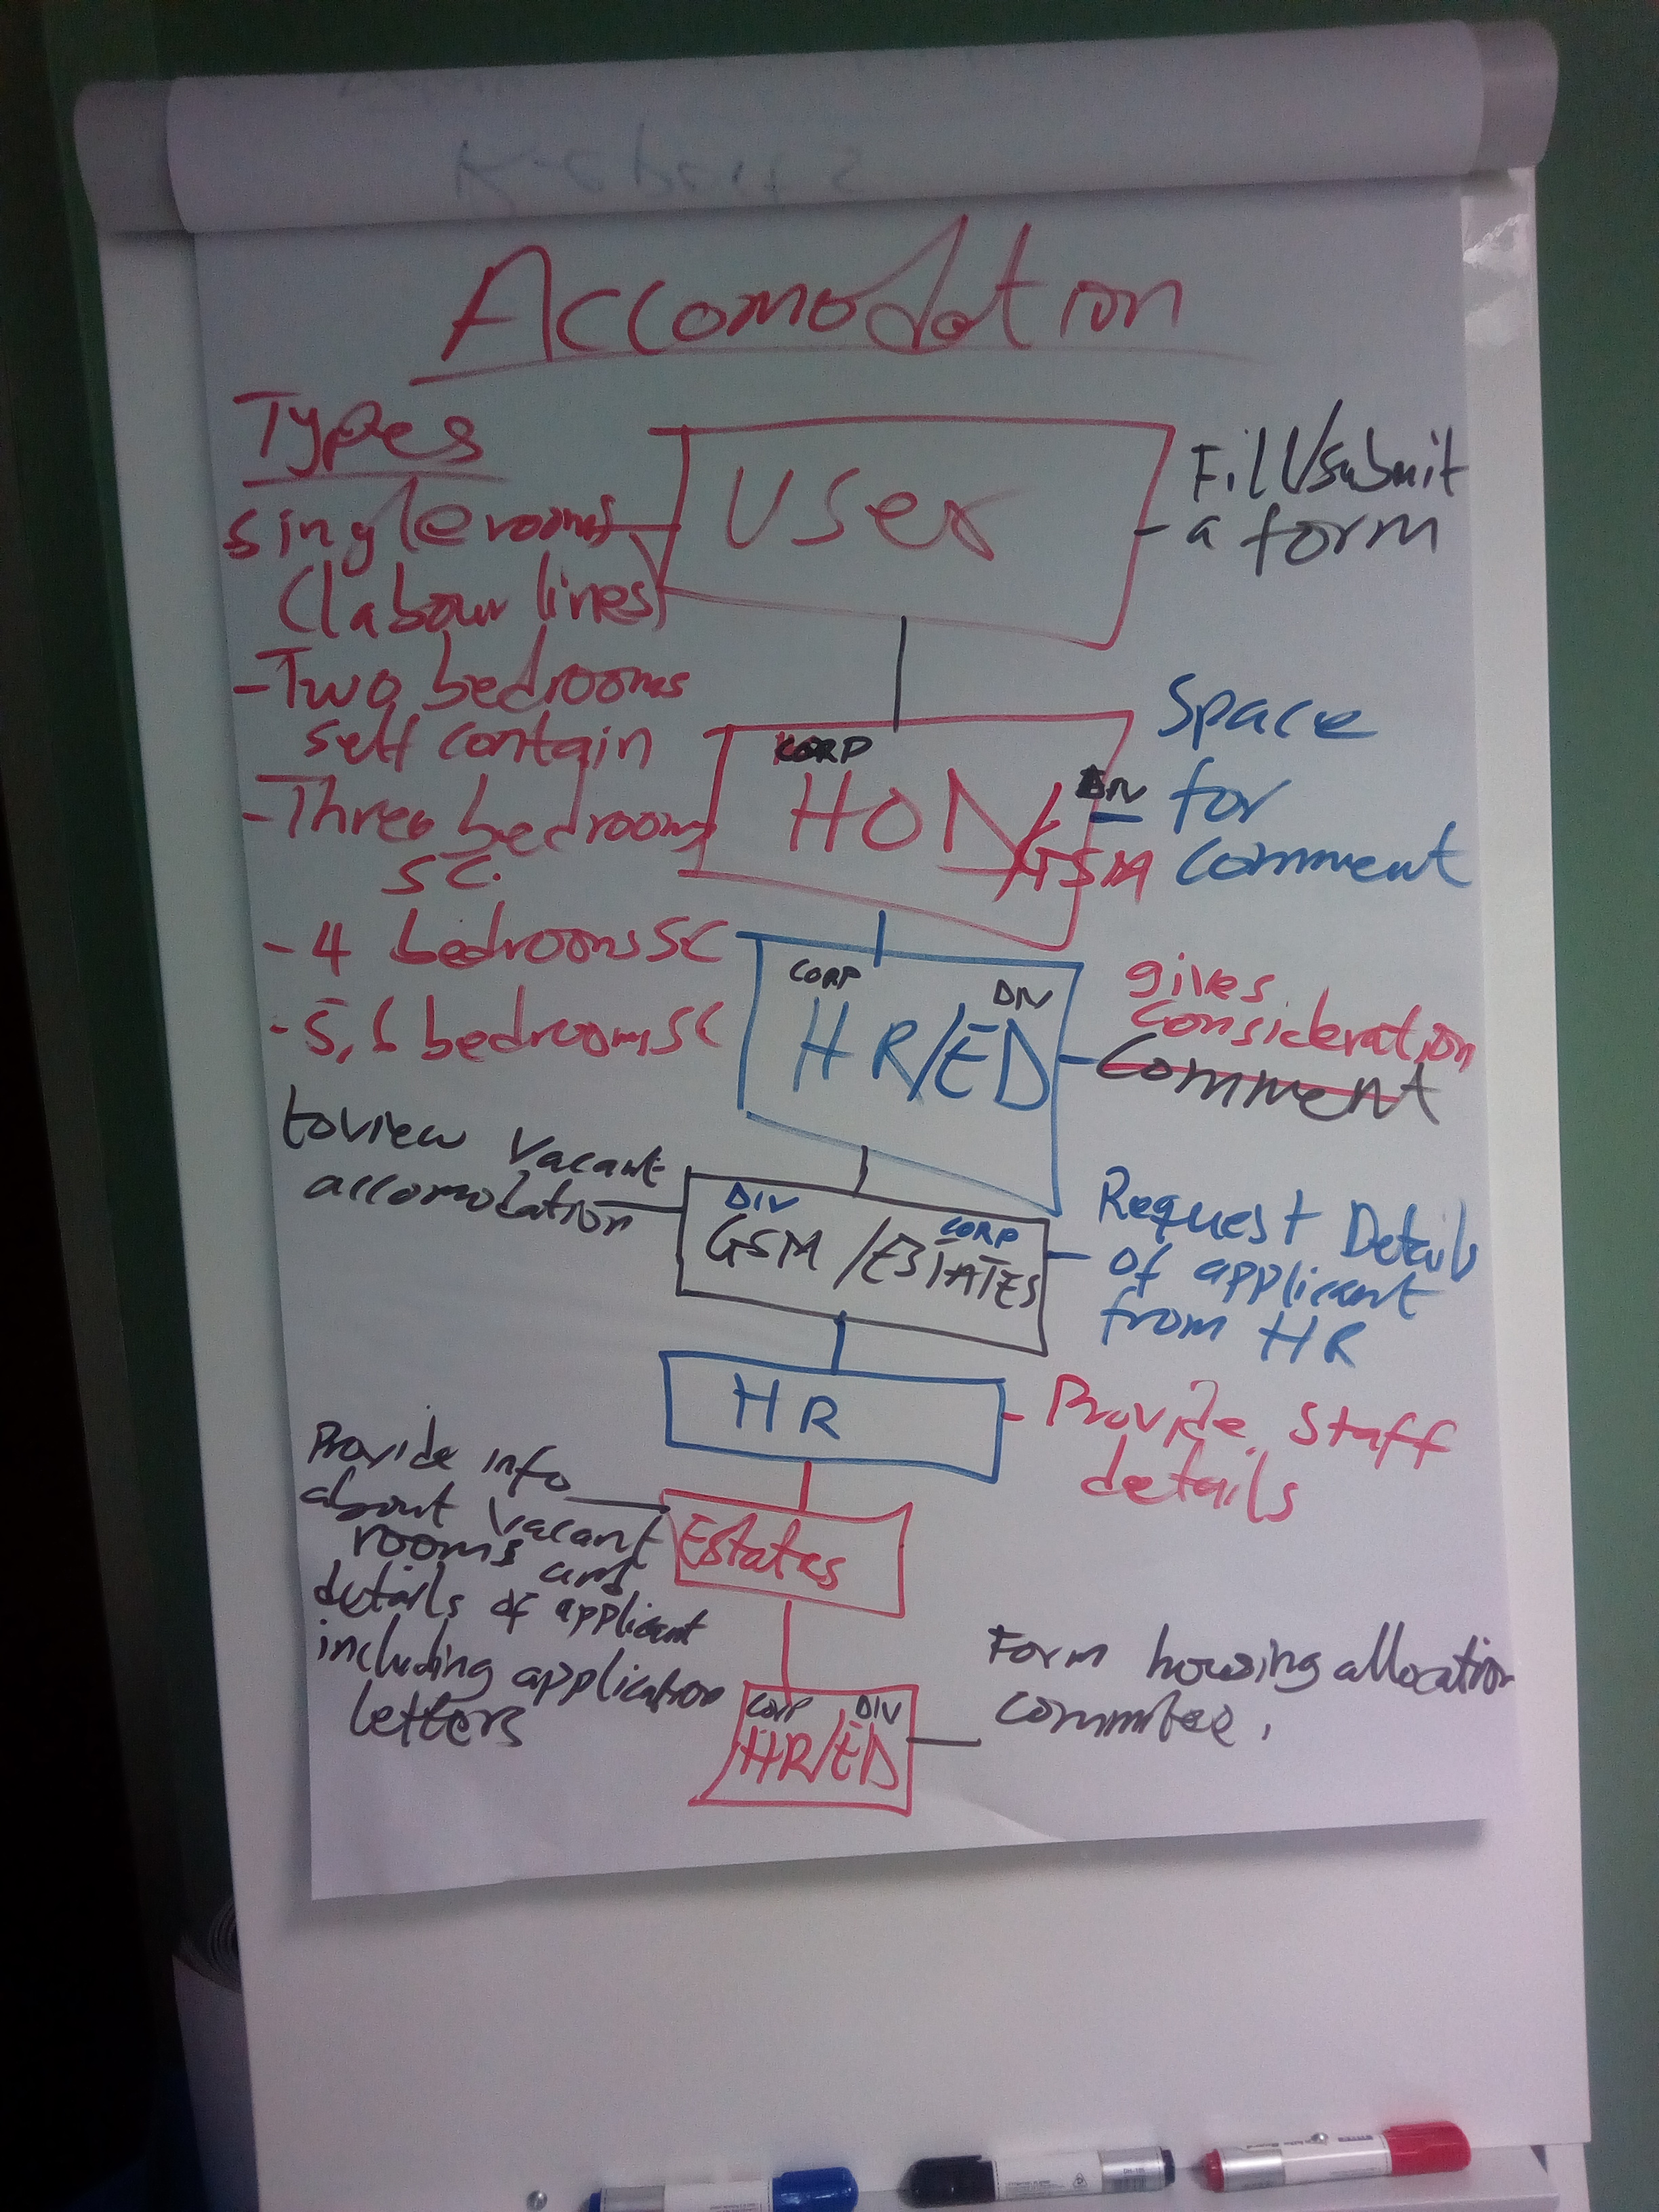 Accomodation
Types
single rooms
(labour lines)
User
Fill/submit
a form
-Two bedrooms
self contain
-Three bedrooms
SC.
- 4 bedrooms SC
- 5, 6 bedrooms SC
CORP
DIV
HOD/GSM
Space
for
comment
CORP
DIV
HR/ED
gives
consideration
Comment
to view vacant
accomodation
DIV
CORP
GSM/ESTATES
Request Details
of applicant
from HR
HR
- Provide staff
details
Provide info
about vacant
rooms and
details of applicant
including application
letters
Estates
Corp
DIV
HR/ED
Form housing allocation
committee.